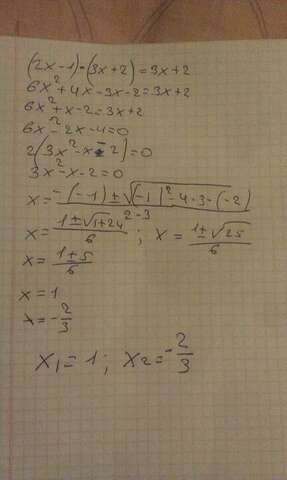 (2x-1)·(3x+2)=3x+2
6x²+4x-3x-2=3x+2
6x²+x-2=3x+2
6x²-2x-4=0
2(3x²-x-2)=0
3x²-x-2=0
x=-(-1)±√(-1)²-4·3·(-2)
2·3
x=1±√1+24/6; x=1±√25/6
x=1±5/6
x=1
x=-2/3
x₁=1; x₂=-2/3